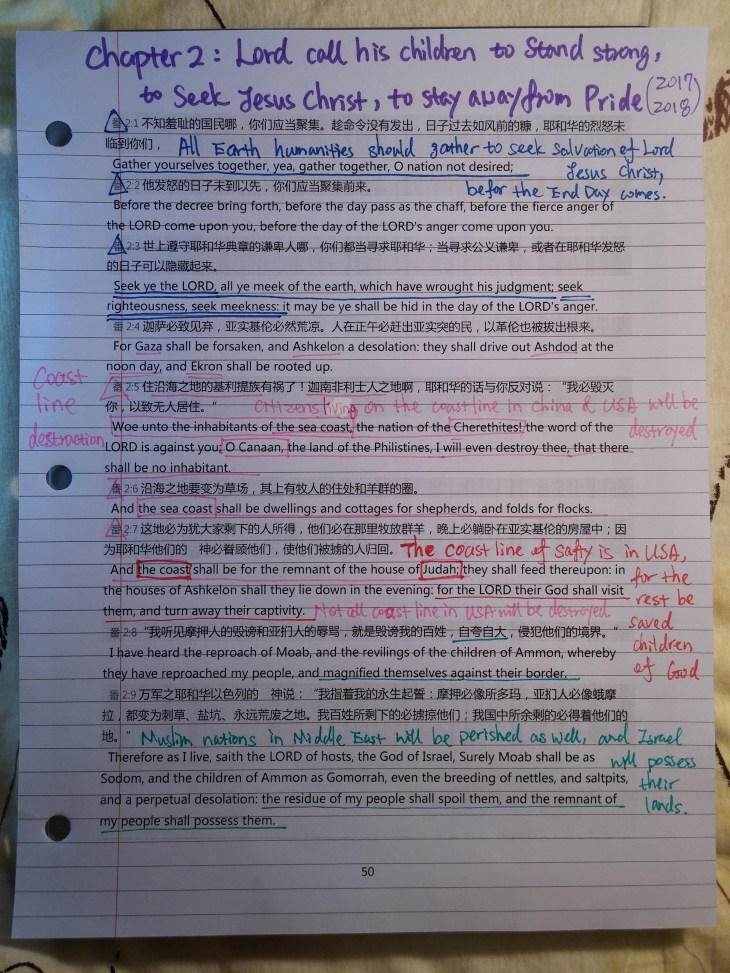 Chapter 2: Lord call his children to Stand strong,
to Seek Jesus Christ, to stay away from Pride (2017
2018)
番 2:1 不知羞耻的国民哪，你们应当聚集。趁命令没有发出，日子过去如风前的糠，耶和华的烈怒未
临到你们， All Earth humanities should gather to seek Salvation of Lord
Gather yourselves together, yea, gather together, O nation not desired; Jesus Christ,
番 2:2 他发怒的日子未到以先，你们应当聚集前来。 befor the End Day comes.
Before the decree bring forth, before the day pass as the chaff, before the fierce anger of
the LORD come upon you, before the day of the LORD's anger come upon you.
番 2:3 世上遵守耶和华典章的谦卑人哪，你们都当寻求耶和华；当寻求公义谦卑，或者在耶和华发怒
的日子可以隐藏起来。
Seek ye the LORD, all ye meek of the earth, which have wrought his judgment; seek
righteousness, seek meekness: it may be ye shall be hid in the day of the LORD's anger.
番 2:4 迦萨必致见弃，亚实基伦必然荒凉。人在正午必赶出亚实突的民，以革伦也被拔出根来。
For Gaza shall be forsaken, and Ashkelon a desolation: they shall drive out Ashdod at the
noon day, and Ekron shall be rooted up.
Coast
line
destraction
番 2:5 住沿海之地的基利提族有祸了！迦南非利士人之地啊，耶和华的话与你反对说：“我必毁灭
你，以致无人居住。” Citizens living on the coastline in china & USA will be
destroyed
Woe unto the inhabitants of the sea coast, the nation of the Cherethites! the word of the
LORD is against you; O Canaan, the land of the Philistines, I will even destroy thee, that there
shall be no inhabitant.
番 2:6 沿海之地要变为草场，其上有牧人的住处和羊群的圈。
And the sea coast shall be dwellings and cottages for shepherds, and folds for flocks.
番 2:7 这地必为犹大家剩下的人所得，他们必在那里牧放群羊，晚上必躺卧在亚实基伦的房屋中；因
为耶和华他们的 神必眷顾他们，使他们被掳的人归回。 The coast line of safty is in USA,
for the
rest be
saved
children
of God
And the coast shall be for the remnant of the house of Judah; they shall feed thereupon: in
the houses of Ashkelon shall they lie down in the evening: for the LORD their God shall visit
them, and turn away their captivity. Not all coast line in USA will be destroyed
番 2:8 “我听见摩押人的毁谤和亚扪人的辱骂，就是毁谤我的百姓，自夸自大，侵犯他们的境界。
I have heard the reproach of Moab, and the revilings of the children of Ammon, whereby
they have reproached my people, and magnified themselves against their border.
番 2:9 万军之耶和华以色列的 神说：“我指着我的永生起誓：摩押必像所多玛，亚扪人必像蛾摩
拉，都变为刺草、盐坑、永远荒废之地。我百姓所剩下的必掳掠他们；我国中所余剩的必得着他们的
地。” Muslim nations in Middle East will be perished as well, and Israel
will possess
their
lands.
Therefore as I live, saith the LORD of hosts, the God of Israel, Surely Moab shall be as
Sodom, and the children of Ammon as Gomorrah, even the breeding of nettles, and saltpits,
and a perpetual desolation: the residue of my people shall spoil them, and the remnant of
my people shall possess them.
50